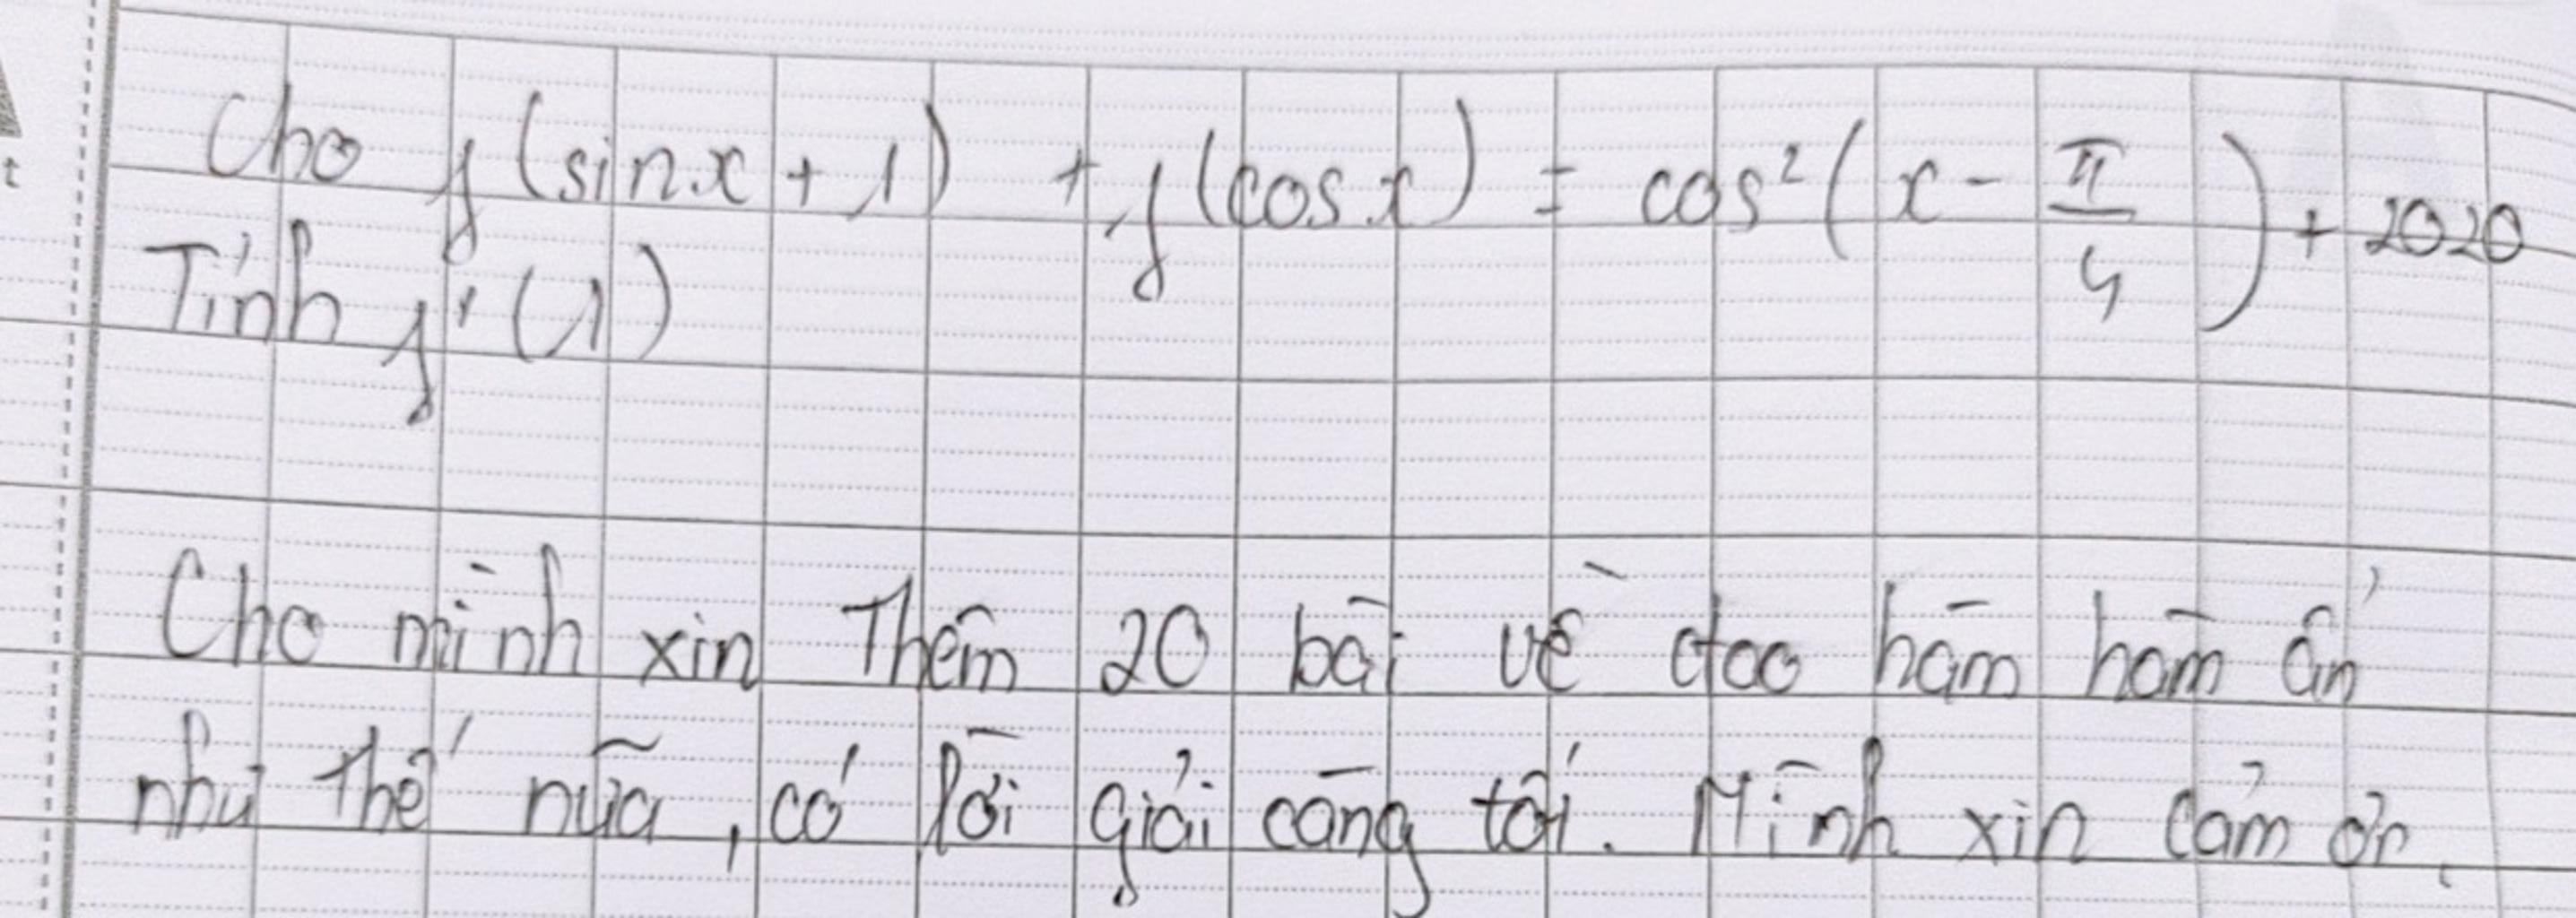 Cho f(sinx + 1) + f(cosx) = cos²(x - π/4) + 2020
Tính f'(1)
Cho mình xin thêm 20 bài về đạo hàm hàm ẩn
như thế nữa, có lời giải càng tốt. Mình xin cảm ơn.